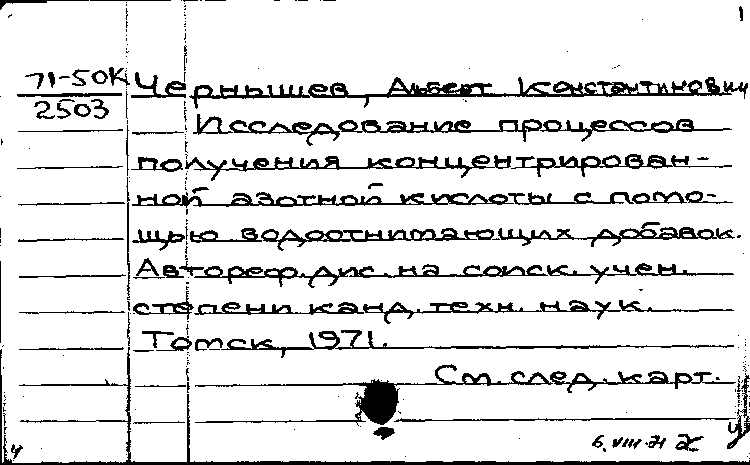 1
71-50к Чернышев, Альберт Константинович
2503
Исследование процессов
получения концентрирован-
ной азотной кислоты с помо-
щью водоотнимающих добавок.
Автореф. дис. на соиск. учен.
степени канд. техн. наук.
Томск, 1971.
См. след. карт.
6.VIII-71
ч